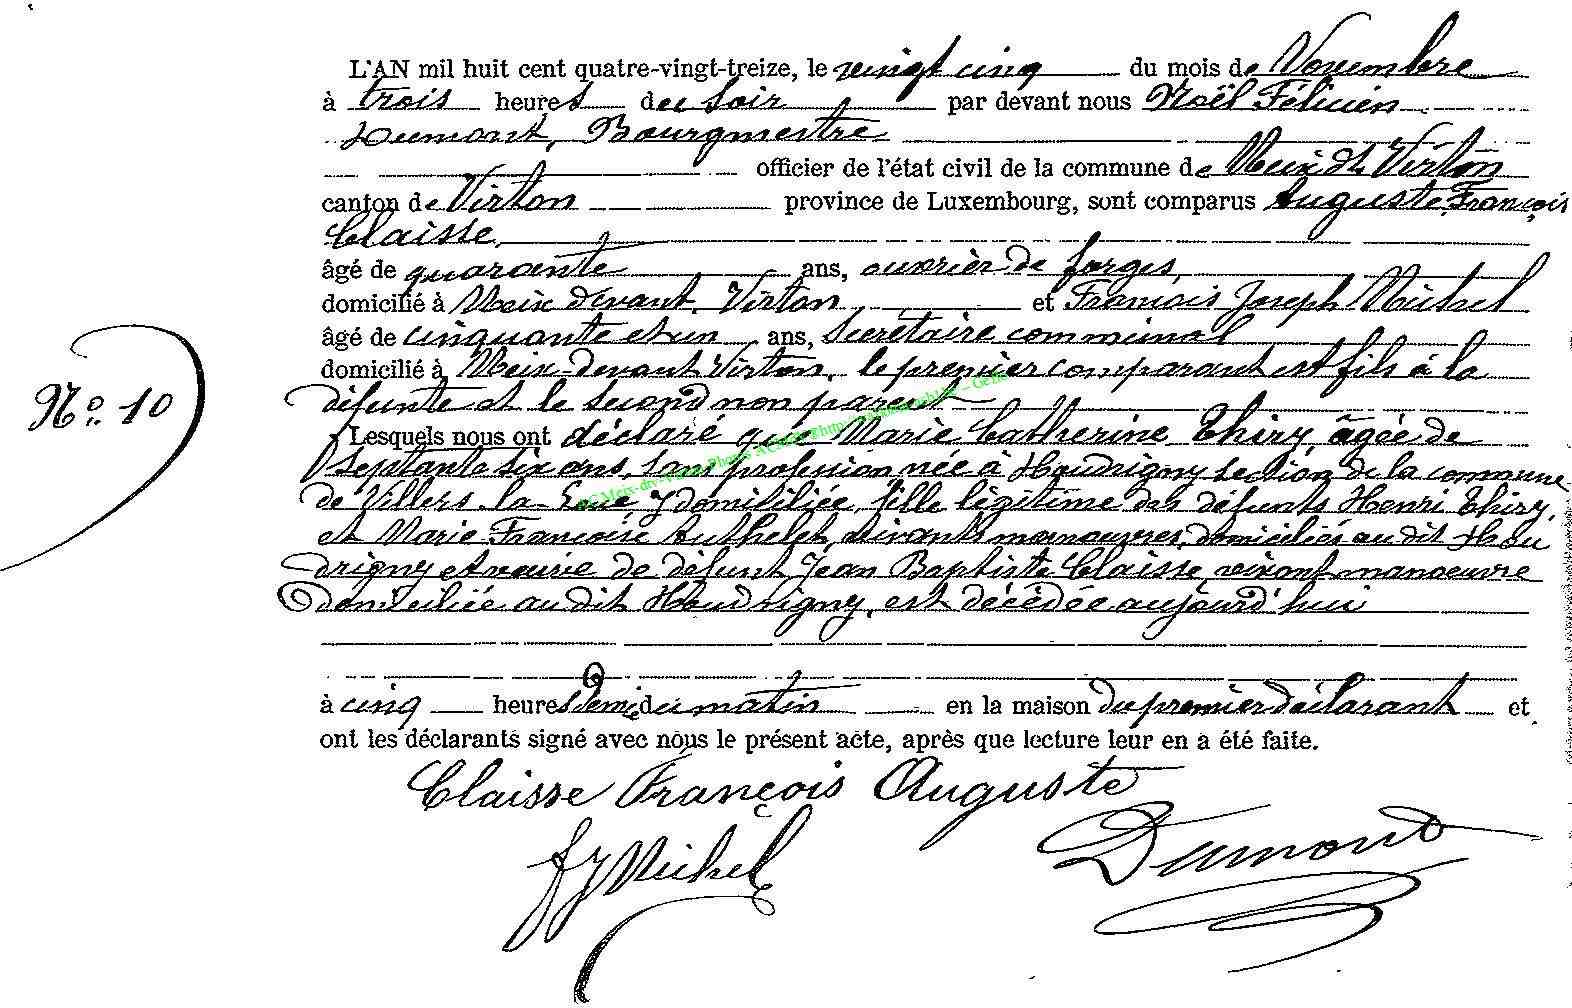 L'AN mil huit cent quatre-vingt-treize, le vingt cinq du mois de Novembre
à trois heures du soir par devant nous Noël Félicien
Dumont, Bourgmestre
officier de l'état civil de la commune de Meix dt Virton
canton de Virton province de Luxembourg, sont comparus Auguste François
Claisse
âgé de quarante ans, ouvrier de forges,
domicilié à Meix devant Virton et François Joseph Michel
âgé de cinquante et un ans, Secrétaire communal
domicilié à Meix-devant Virton, le premier comparant est fils à la
défunte et le second non parent
N° 10
Lesquels nous ont déclaré que Marie Catherine Thiry âgée de
septante six ans, sans profession née à Houdrigny section de la commune
de Villers-la-Loue y domiciliée, fille légitime des défunts Henri Thiry,
et Marie Françoise Authelet, vivants manoeuvres, domiciliés au dit Hou
drigny et veuve de défunt Jean Baptiste Claisse, vivant manoeuvre
domiciliée au dit Houdrigny, est décédée aujourd'hui
à cinq heures demie du matin en la maison du premier déclarant et
ont les déclarants signé avec nous le présent acte, après que lecture leur en a été faite.
Claisse François Auguste
fJ Michel
Dumont